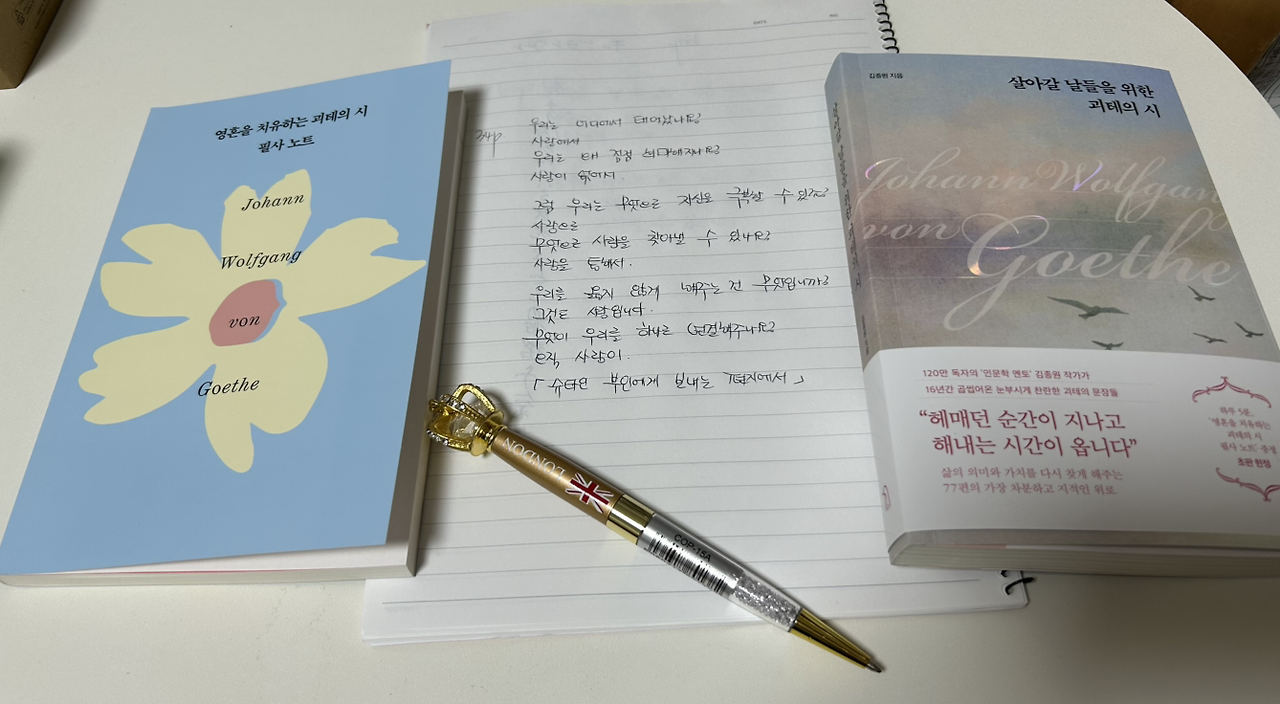 영혼을 치유하는 괴테의 시
필사 노트
Johann
Wolfgang
von
Goethe
DATE
NO.
우리는 어디에서 태어났나요?
사랑에서
우리는 왜 점점 희미해지나요?
사랑이 없어서.
그럼 우리는 무엇으로 자신을 극복할 수 있죠?
사랑으로
무엇으로 사랑을 찾아낼 수 있나요?
사랑을 통해서.
우리를 울지 않게 해주는 건 무엇입니까?
그것도 사랑입니다.
무엇이 우리를 하나로 연결해주나요?
오직, 사랑이.
「슈타인 부인에게 보내는 편지에서」
LONDON
COP-15A
김종원 지음
살아갈 날들을 위한
괴테의 시
Johann Wolfgang
von
Goethe
120만 독자의 '인문학 멘토' 김종원 작가가
16년간 곱씹어온 눈부시게 찬란한 괴테의 문장들
“헤매던 순간이 지나고
해내는 시간이 옵니다”
삶의 의미와 가치를 다시 찾게 해주는
77편의 가장 차분하고 지적인 위로
하루 5분,
'영혼을 치유하는
괴테의 시
필사 노트' 증정
초판 한정